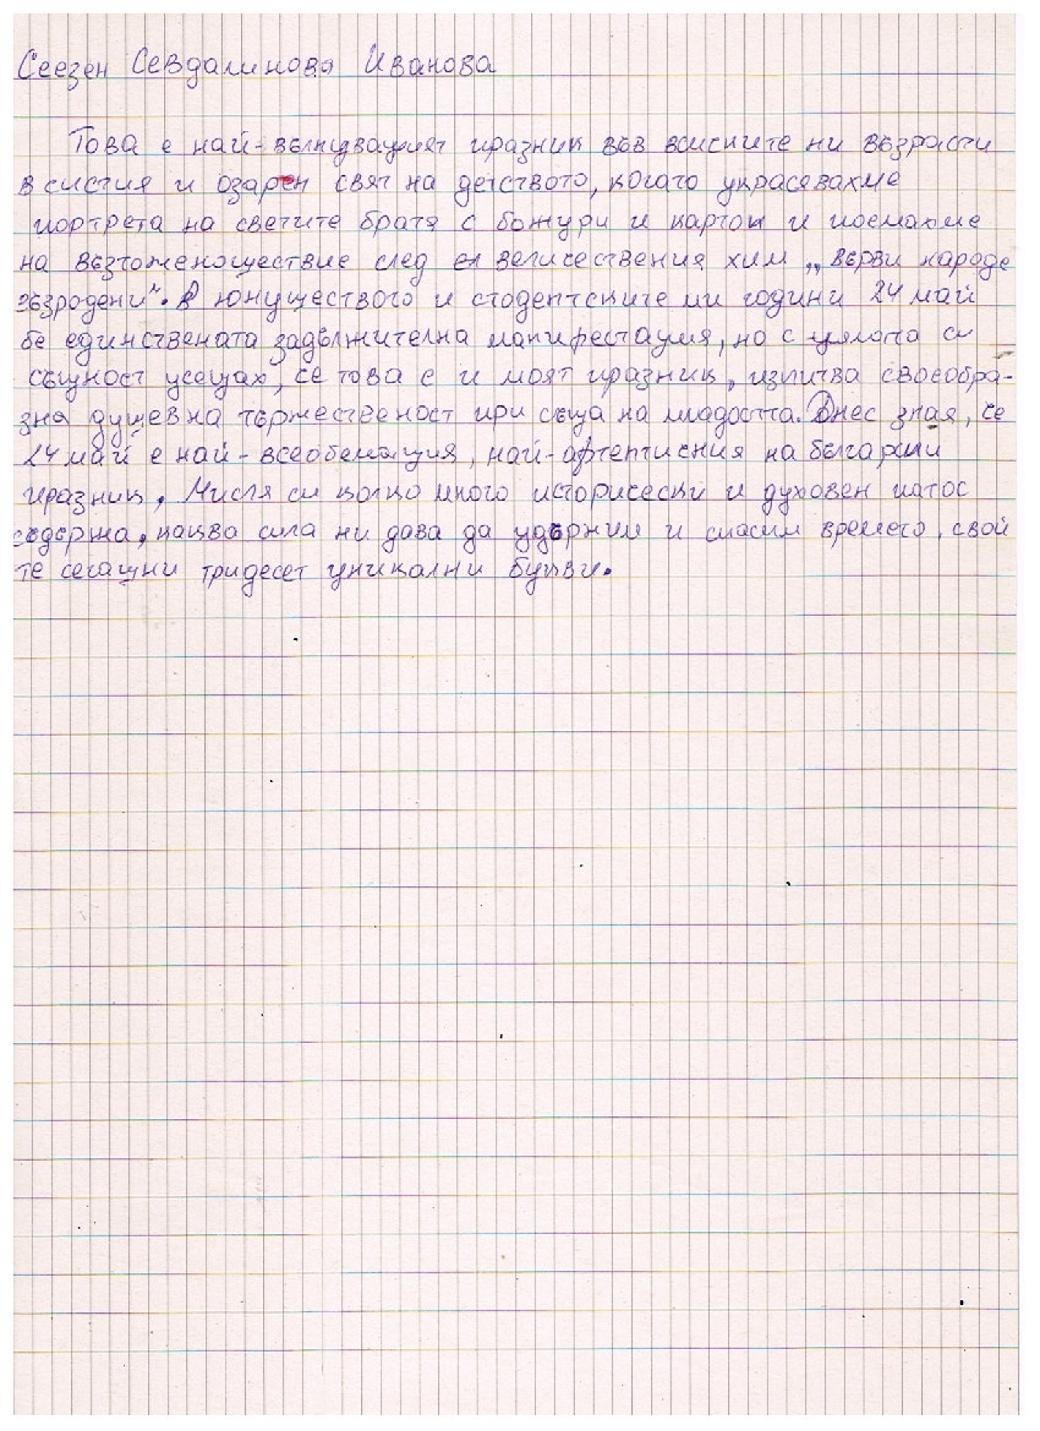 Сеезен Севдалинова Иванова
Това е най-вълнуващият празник във всисните ни възрасти
в систия и озарен свят на детството, когато украсявахме
портрета на светите братя с божури и картон и поемахме
на възтоженошествие след ел величествения хим „върви народе
възродени". В юношеството и стодентските ми години 24 май
бе единствената задължителна манифестация, но с цялота си
същност усещах, се това е и моят празник, изпитва своеобра-
зна душевна тържественост при съща на младостта. Днес зная, се
24 май е най-всеобемащия, най-афтентисния на българши
празник. Мисля си колко много исторически и духовен патос
съдържа, каква сила ни дава да удържим и спасим времето, свой
те сегашни тридесет уникални букви.